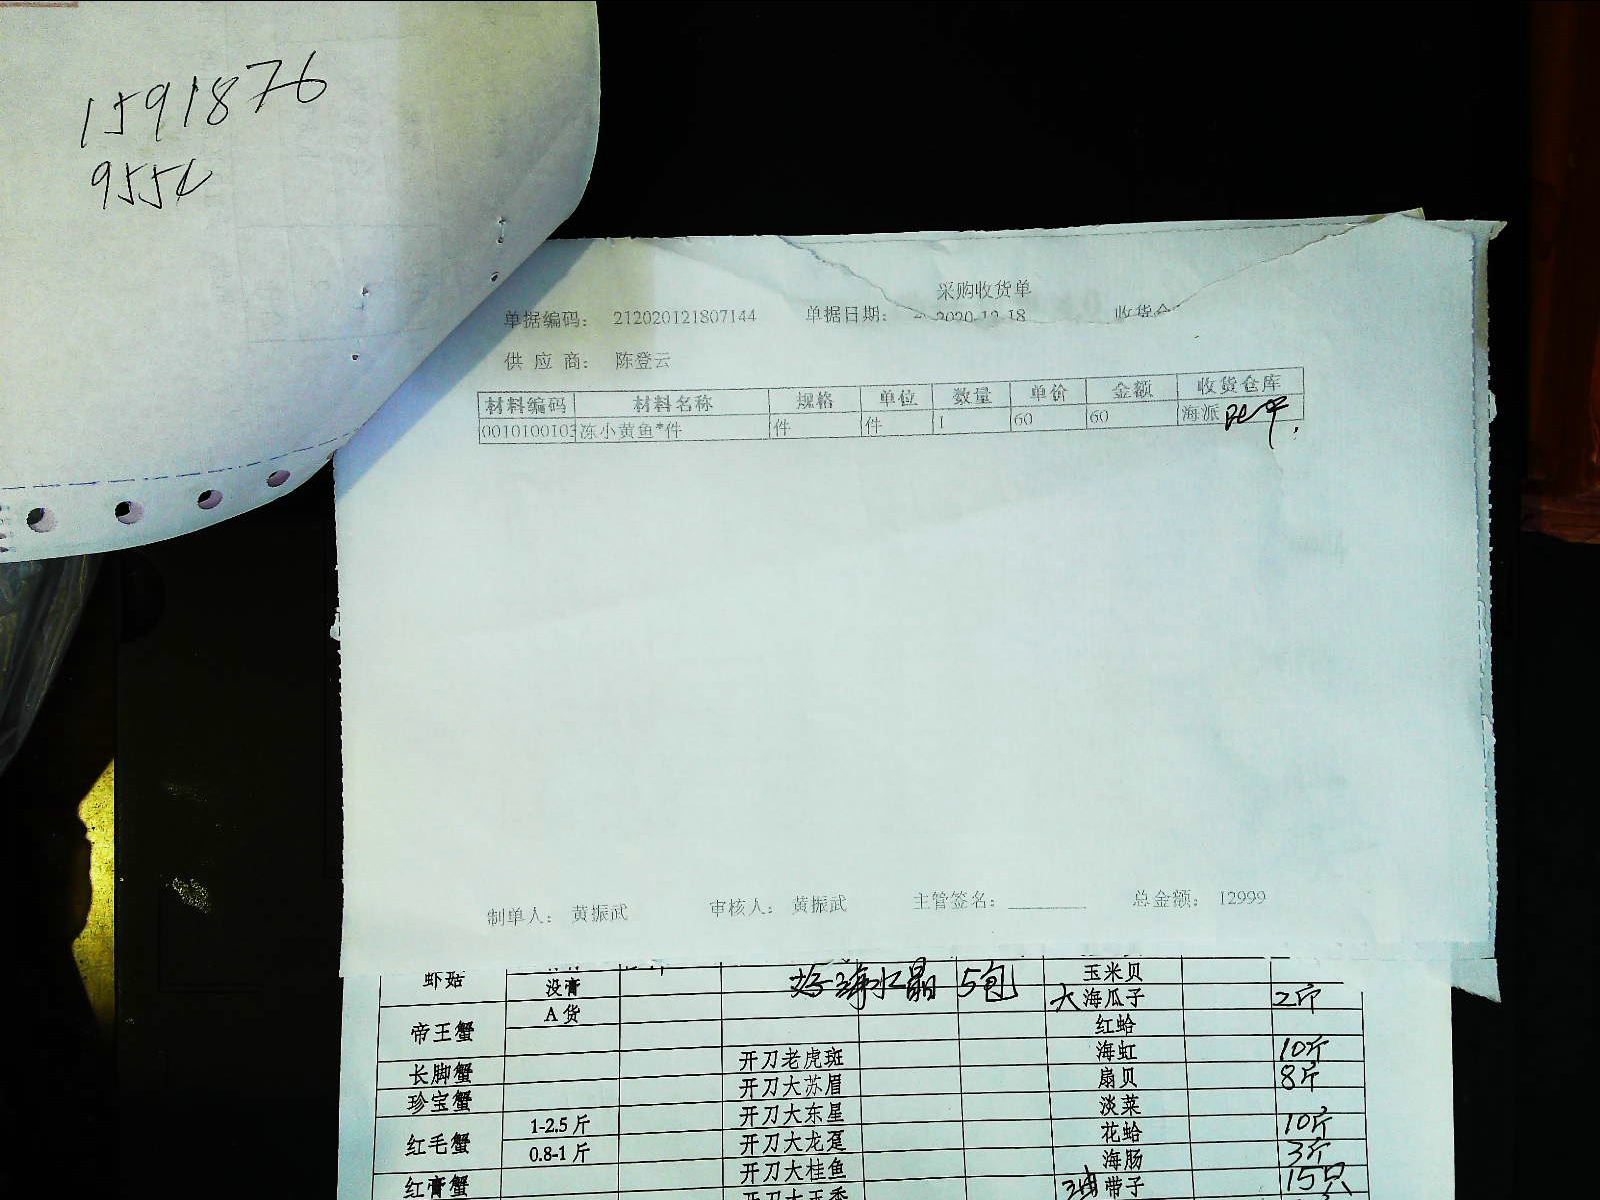 1591876
955
采购收货单
单据编码: 212020121807144 单据日期: 2020-12-18 收货仓
供应商: 陈登云
材料编码 材料名称 规格 单位 数量 单价 金额 收货仓库
001010010 冻小黄鱼*件 件 件 1 60 60 海派
制单人: 黄振武 审核人: 黄振武 主管签名: ________ 总金额: 12999
虾菇 没膏 海水晶 5包 玉米贝
大海瓜子 2斤
帝王蟹 A货 红蛤
开刀老虎斑 海虹 10斤
长脚蟹 开刀大苏眉 扇贝 8斤
珍宝蟹 开刀大东星 淡菜
红毛蟹 1-2.5斤 开刀大龙趸 花蛤 10斤
0.8-1斤 开刀大桂鱼 海肠 3斤
红膏蟹 带子 15只